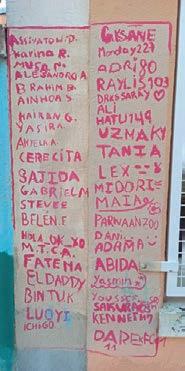 ASSIVATOU.D.
Karina R.
MUSA M.
ALESSANDRO A
BRAHIM B
AINHOA S
HAIRAN G.
YASIRA.
ANGELA
CERECITA
SAJIDA
GABRIELA M
STEVEE
BELEN.F
HOLA_OK_XD
M.T.C.A.
FATEMA
ELDADDY
BINTUK
LUOYI
ICHIGO.
GISANE
Monday227
ADRI80
RAYLIS103
DRKSSARKY
ALI
HATU149
UZNAKY
TANIA
LEX
MIDORI
MAIA
PARWAANZOO
DANI.
ADAMA
ABIDA
Yasmin
YOUSSEF
SAKURACIS
KENNETH7
DAREFCF
11